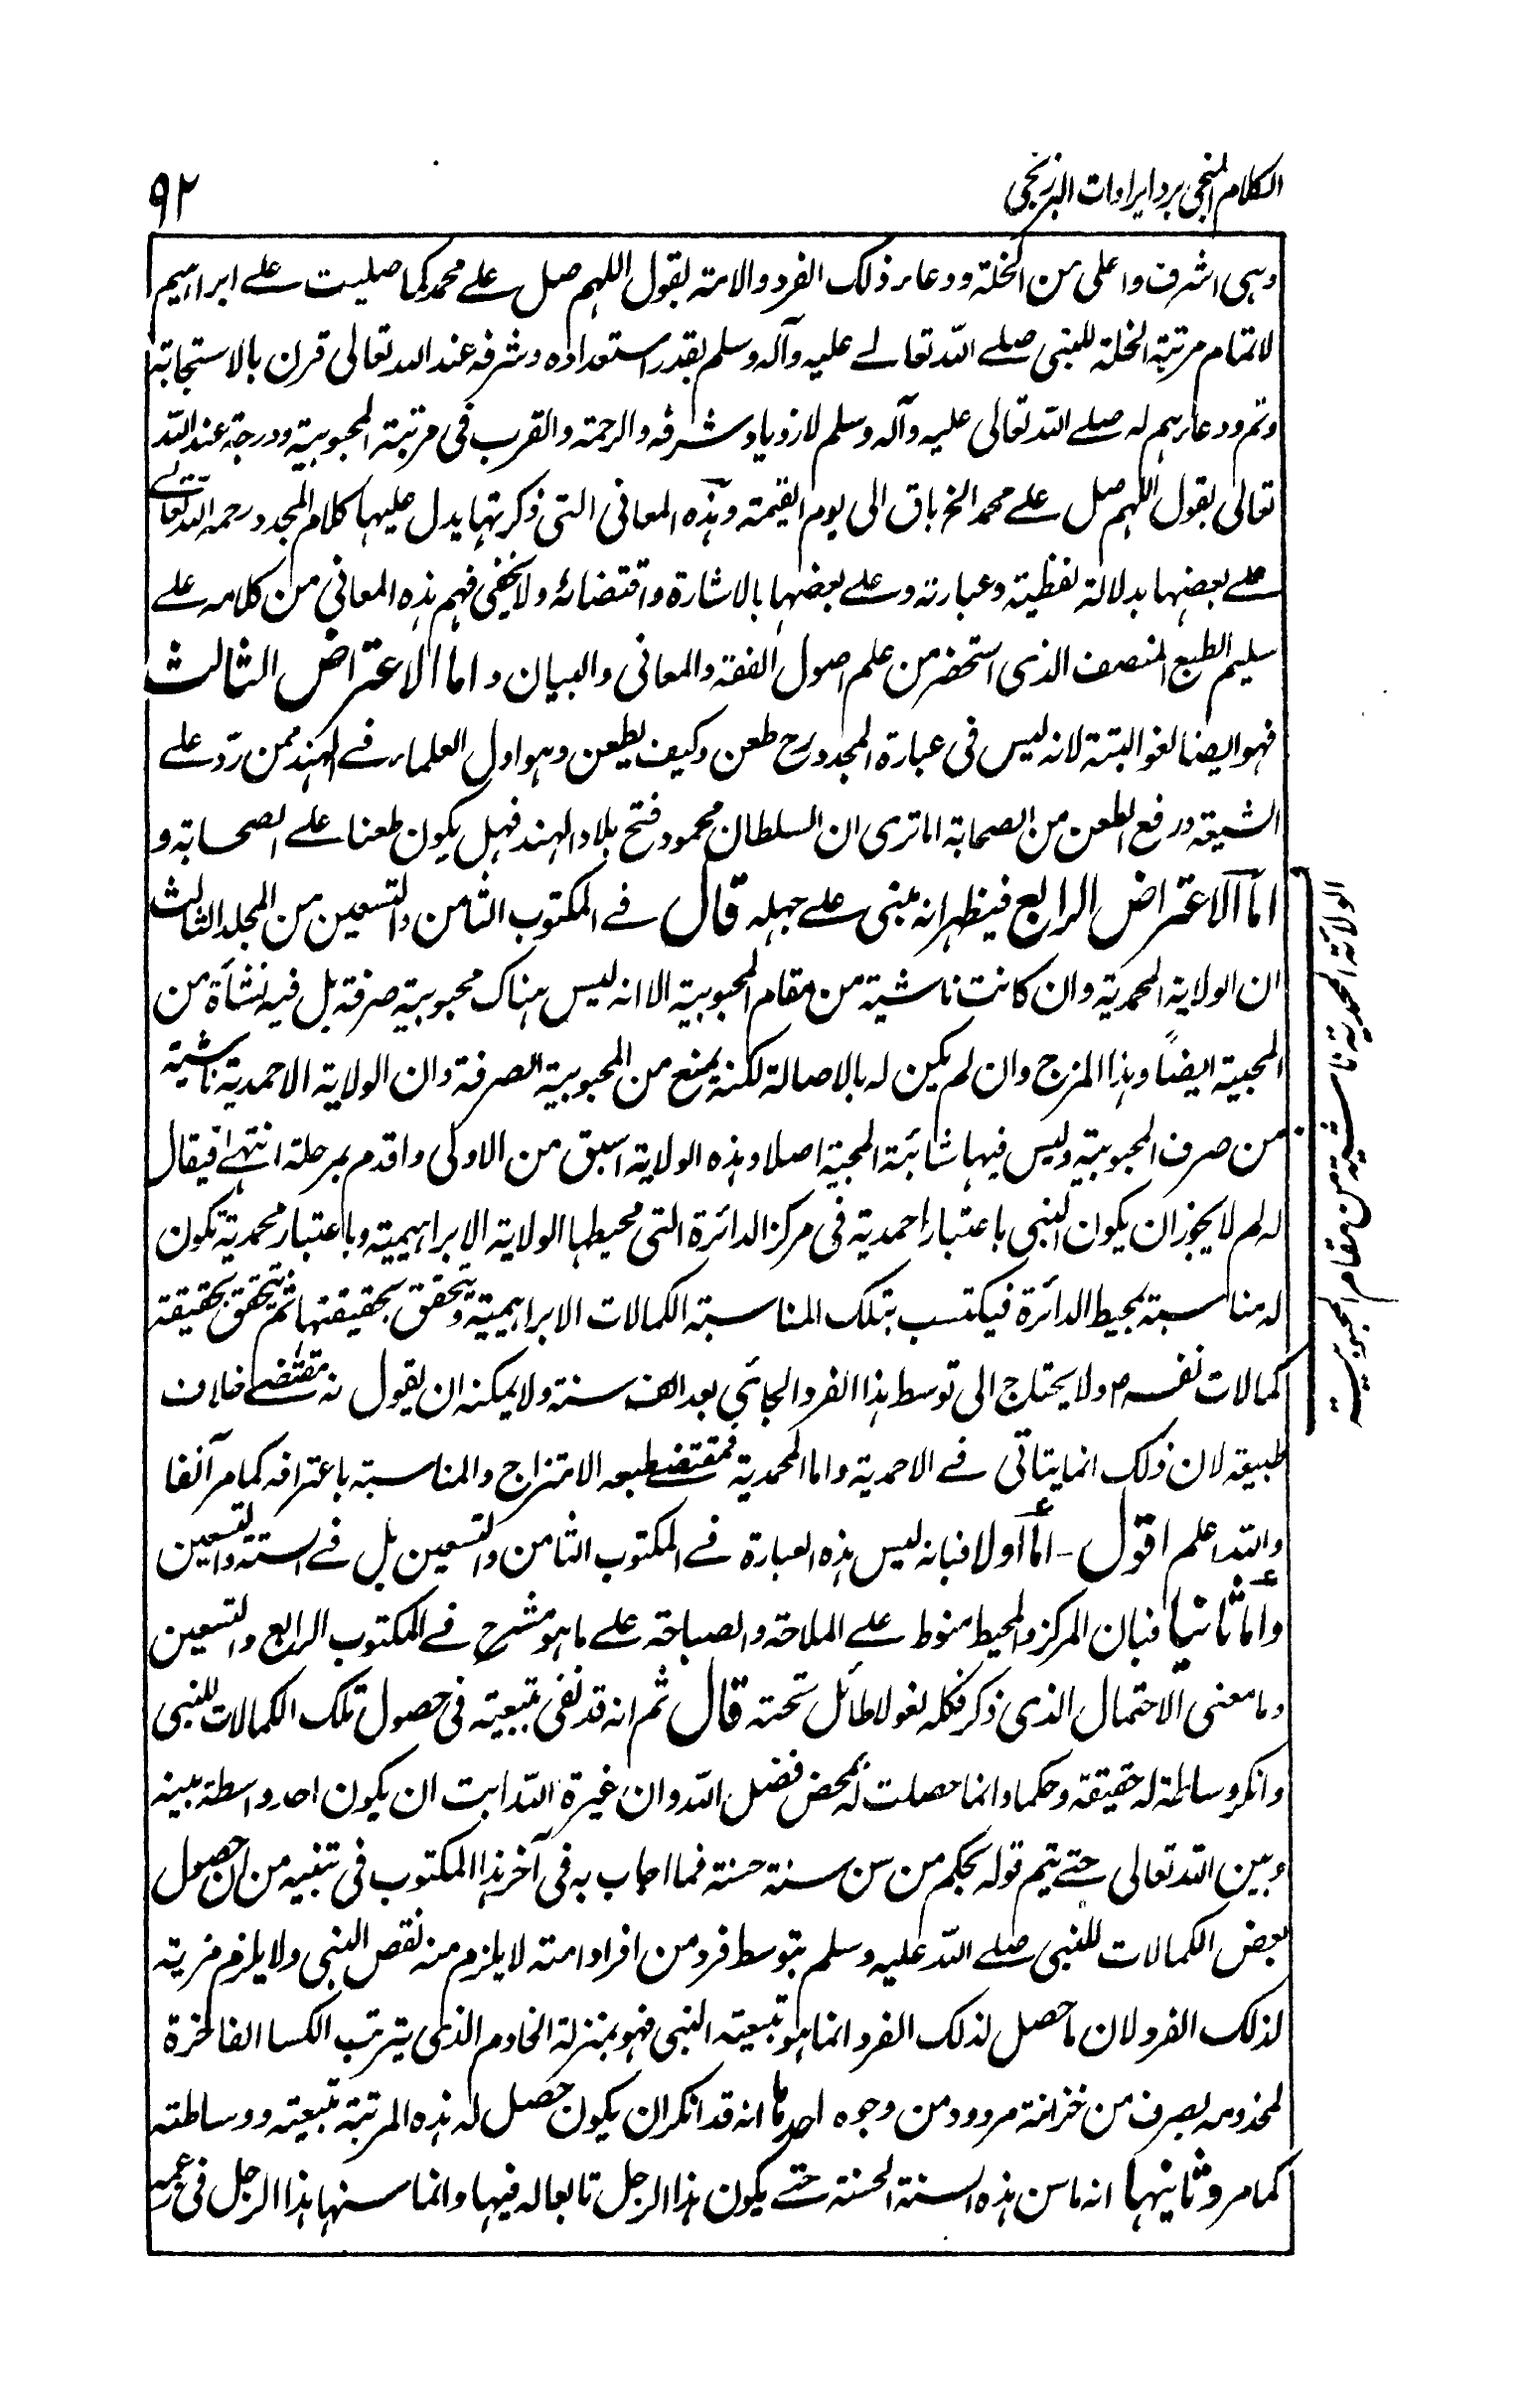 الكلام المنجى برد ايرادات البرزنجى
٩٢
وهى اشرف واعلى من الخلة ودعاء ذلك الفرد والامة بقول اللهم صل على محمد كما صليت على ابراهيم
لاتمام مرتبة الخلة للنبى صلى الله تعالى عليه وآله وسلم بقدر استعداده وشرفه عند الله تعالى قرن بالاستجابة
وتم ودعاءهم له صلى الله تعالى عليه وآله وسلم لازدياد شرفه والرحمة والقرب فى مرتبة المحبوبية ودرجة عند الله
تعالى بقول اللهم صل على محمد الخ باق الى يوم القيمة وهذه المعانى التى ذكرتها يدل عليها كلام المجدد رحمه الله تعالى
على بعضها بدلالة لفظية وعبارته وعلى بعضها بالاشارة واقتضائه ولا يخفى فهم هذه المعانى من كلامه على
سليم الطبع المنصف الذى استحضر من علم اصول الفقه والمعانى والبيان واما الاعتراض الثالث
فهو ايضا لغو البتة لانه ليس فى عبارة المجدد رح طعن وكيف يطعن وهو اول العلماء فى الهند ممن رد على
الشيعة ورفع الطعن من الصحابة اما ترى ان السلطان محمود فتح بلاد الهند فهل يكون طعنا على الصحابة و
اما الاعتراض الرابع فيظهر انه مبنى على جهله قال فى المكتوب الثامن والتسعين من المجلد الثالث
ان الولاية المحمدية وان كانت ناشية من مقام المحبوبية الا انه ليس هناك محبوبية صرفة بل فيه نشأة من
المحبية ايضاً وهذا المزج وان لم يكن له بالاصالة لكنه يمنع من المحبوبية الصرفة وان الولاية الاحمدية ناشية
من صرف المحبوبية وليس فيها شائبة المحبية اصلا وهذه الولاية اسبق من الاولى واقدم بمرحلة انتهى فيقال
له لم لا يجوز ان يكون النبى باعتبار احمدية فى مركز الدائرة التى محيطها الولاية الابراهيمية وباعتبار محمدية تكون
له مناسبة بمحيط الدائرة فيكتسب بتلك المناسبة الكمالات الابراهيمية ويتحقق بحقيقتها ثم يتحقق بحقيقة
كمالات نفسه ولا يحتاج الى توسط هذا الفرد الجائى بعد الف سنة ولا يمكنه ان يقول انه مقتضى خلاف
طبيعة لان ذلك انما يتأتى فى الاحمدية واما المحمدية فمقتضى طبعه الامتزاج والمناسبة باعترافه كما مر آنفا
والله اعلم اقول - اما اولا فبانه ليس هذه العبارة فى المكتوب الثامن والتسعين بل فى الستة والتسعين
واما ثانيا فبان المركز والمحيط منوط على الملاحة والصباحة على ما هو مشرح فى المكتوب الرابع والتسعين
وما معنى الاحتمال الذى ذكر فكله لغو لا طائل تحته قال ثم انه قد نفى تبعيته فى حصول تلك الكمالات للنبى
وانكر وساطة له حقيقة وحكما وانما حصلت له بمحض فضل الله وان غيرة الله ابت ان يكون احد واسطة بينه
وبين الله تعالى حتى يتم قوله بحكم من سن سنة حسنة فما اجاب به فى آخر هذا المكتوب فى تنبيه من ان حصول
بعض الكمالات للنبى صلى الله عليه وسلم بتوسط فرد من افراد امته لا يلزم منه نقص النبى ولا يلزم مزية
لذلك الفرد لان ما حصل لذلك الفرد انما هو تبعية النبى فهو بمنزلة الخادم الذى يترتب الكسا الفاخرة
لمخدومه بصرف من خزانة مردود من وجوه احدها انه قد انكر ان يكون حصل له هذه المرتبة تبعيته ووساطته
كما مر وثانيها انه ما سن هذه السنة الحسنة حتى يكون هذا الرجل تابعا له فيها وانما سنها هذا الرجل فى عمه
الولاية المحمدية ناشية من مقام المحبوبية